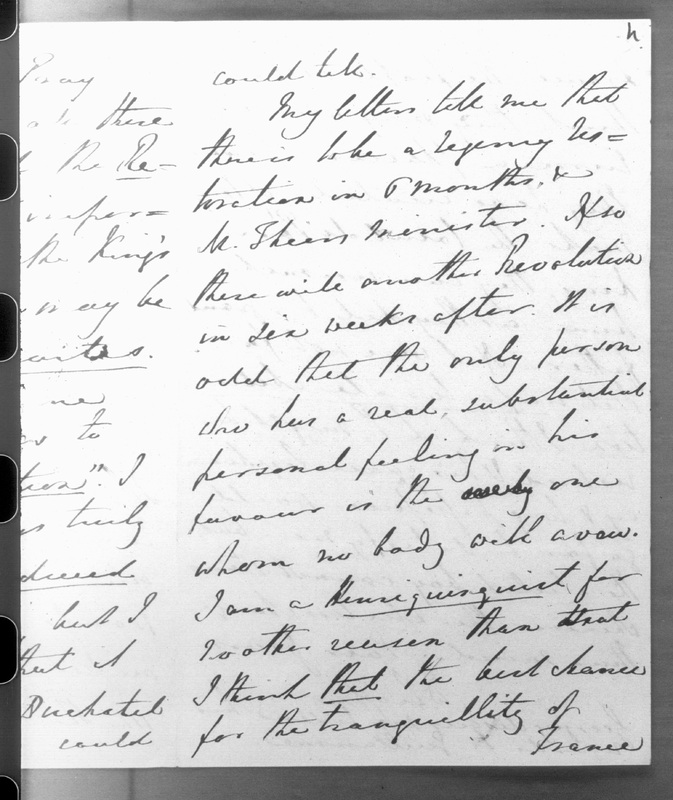 4.
Pray
these
the Re=
the King's
may be
me
to
tion". I
truly
but I
that it
Duchatel
could
could tell.
My letters tell me that
there is to be a regency Res=
toration in 6 months, &
M. Thiers Minister. Also
there will another Revolution
in six weeks after. It is
odd that the only person
who has a real, substantial
personal feeling in his
favour is the one
whom no body will avow.
I am a Henriquinquist for
no other reason than that
I think that the best chance
for the tranquillity of
France